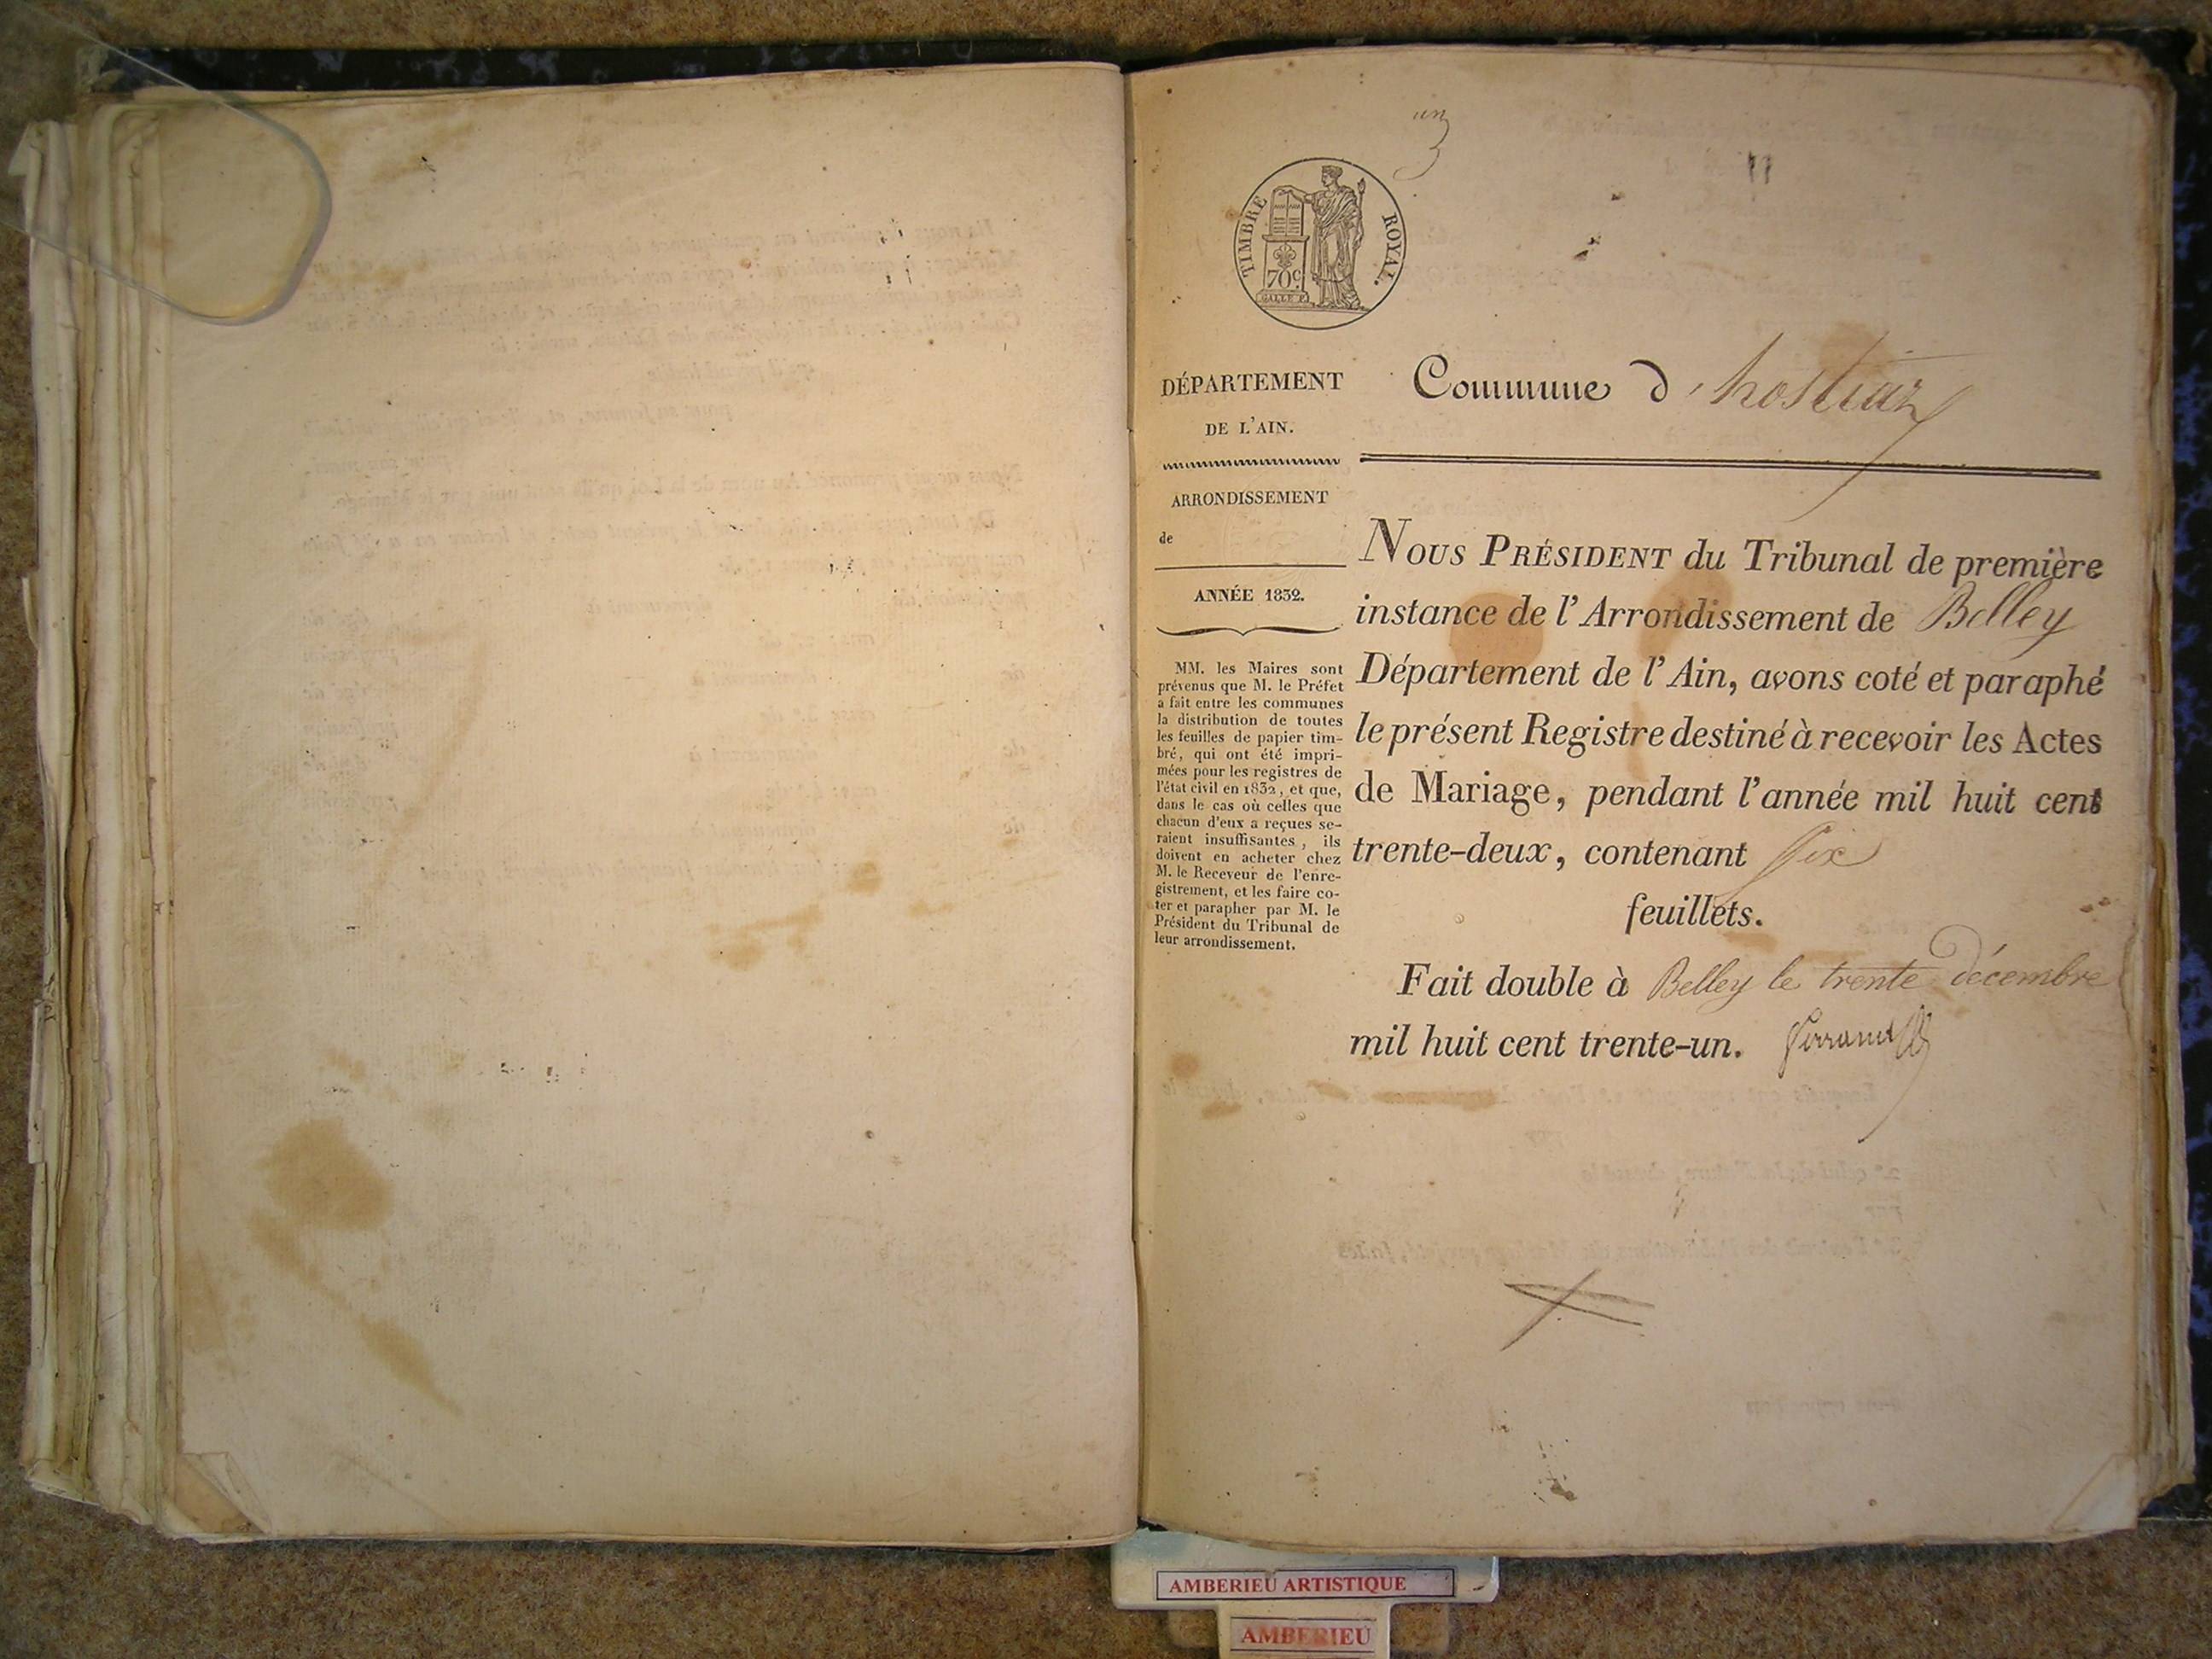 un
TIMBRE ROYAL.
70c.
GALLE F.
DÉPARTEMENT
DE L'AIN.
ARRONDISSEMENT
de
ANNÉE 1832.
MM. les Maires sont
prévenus que M. le Préfet
a fait entre les communes
la distribution de toutes
les feuilles de papier tim-
bré, qui ont été impri-
mées pour les registres de
l'état civil en 1832, et que,
dans le cas où celles que
chacun d'eux a reçues se-
raient insuffisantes, ils
doivent en acheter chez
M. le Receveur de l'enre-
gistrement, et les faire co-
ter et parapher par M. le
Président du Tribunal de
leur arrondissement.
Commune d'hostiaz
NOUS PRÉSIDENT du Tribunal de première
instance de l'Arrondissement de Belley
Département de l'Ain, avons coté et paraphé
le présent Registre destiné à recevoir les Actes
de Mariage, pendant l'année mil huit cent
trente-deux, contenant six
feuillets.
Fait double à Belley le trente décembre
mil huit cent trente-un.
AMBERIEU ARTISTIQUE
AMBERIEU